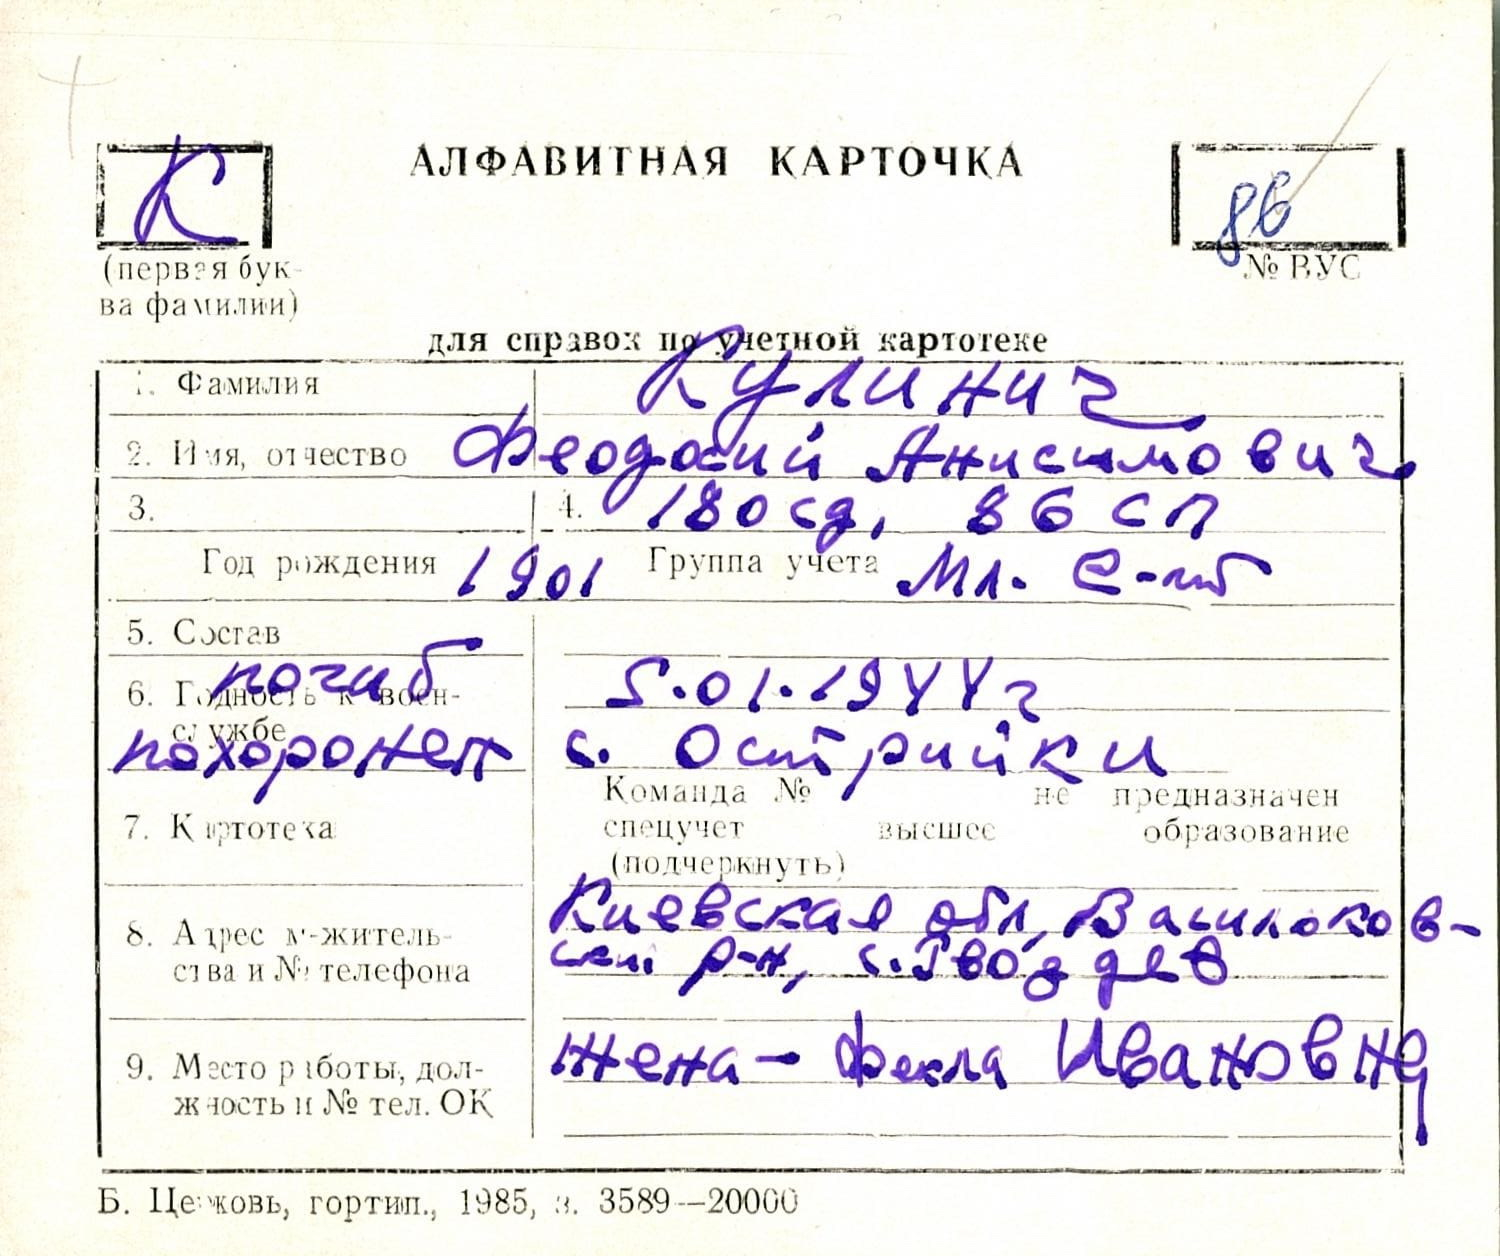 К
АЛФАВИТНАЯ КАРТОЧКА
86
(первая бук-
ва фамилии)
№ ВУС
для справок по учетной картотеке
1. Фамилия Кулинич
2. Имя, отчество Феодосий Анисимович
3. 4. 180 сд, 86 сп
Год рождения 1901 Группа учета Мл. с-нт
5. Состав
погиб 5.01.1944 г
6. Годность к воен-
службе
похоронен с. Острийки
Команда № не предназначен
7. Картотека спецучет высшее образование
(подчеркнуть)
Киевская обл, Васильков-
8. Адрес м-житель- ский р-н, с. Гвоздев
ства и № телефона
жена - Фекла Ивановна
9. Место работы, дол-
жность и № тел. ОК
Б. Церковь, гортип., 1985, з. 3589—20000